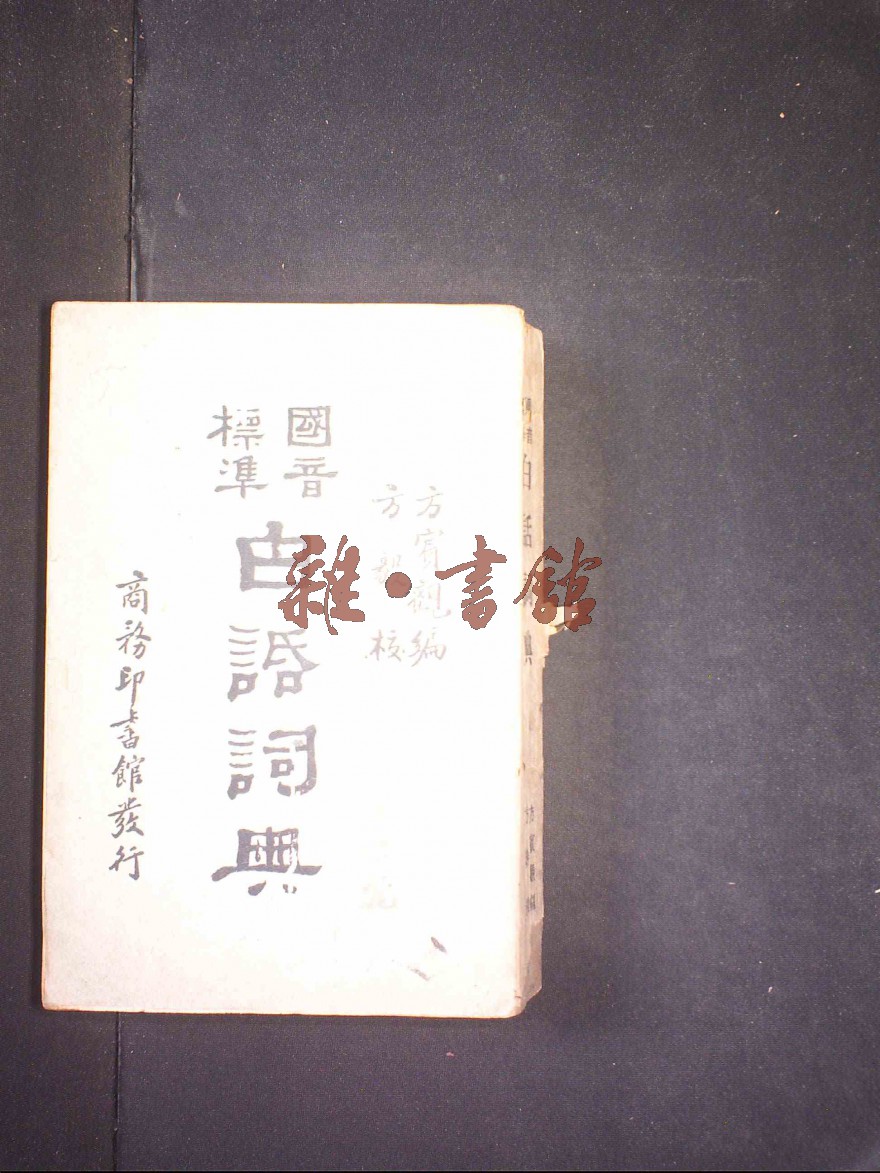 方賓觀編
方 校
國音
標準
白話詞典
商務印書館發行
雜·書館
白話 典